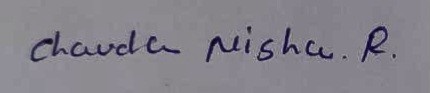 Chavda Nisha. R.